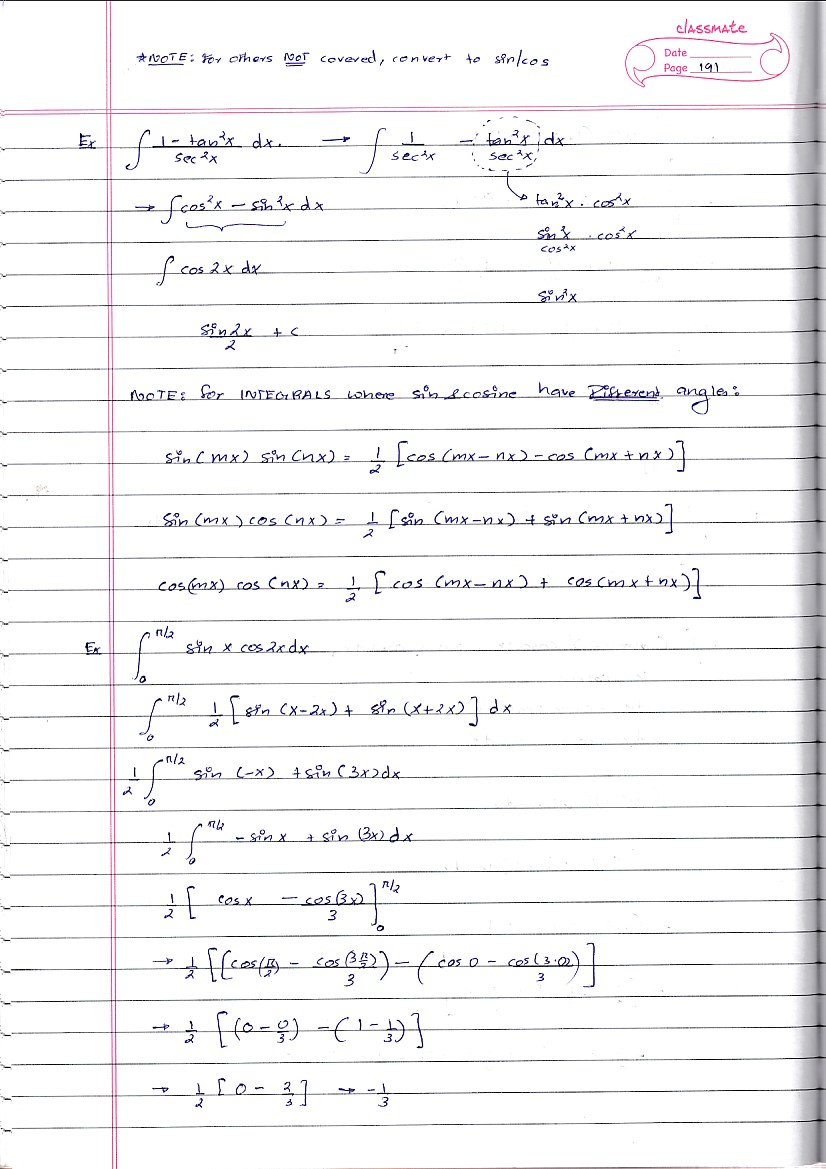 classmate
Date
Page 191
*NOTE: for others NOT covered, convert to sin/cos
Ex ∫ 1 - tan²x / sec²x dx. → ∫ 1/sec²x - tan²x/sec²x dx
→ ∫ cos²x - sin²x dx
tan²x . cos²x
sin²x/cos²x . cos²x
∫ cos 2x dx
sin²x
sin2x/2 + c
NOTE: for INTEGRALS where sin & cosine have Different angles:
sin(mx) sin(nx) = 1/2 [cos(mx-nx) - cos(mx+nx)]
sin(mx) cos(nx) = 1/2 [sin(mx-nx) + sin(mx+nx)]
cos(mx) cos(nx) = 1/2 [cos(mx-nx) + cos(mx+nx)]
Ex ∫₀^π/2 sin x cos2x dx
∫₀^π/2 1/2 [sin(x-2x) + sin(x+2x)] dx
1/2 ∫₀^π/2 sin(-x) + sin(3x) dx
1/2 ∫₀^π/2 - sin x + sin(3x) dx
1/2 [cosx - cos(3x)/3]₀^π/2
→ 1/2 [(cos(π/2) - cos(3π/2)/3) - (cos 0 - cos(3·0)/3)]
→ 1/2 [(0 - 0/3) - (1 - 1/3)]
→ 1/2 [0 - 2/3] → -1/3